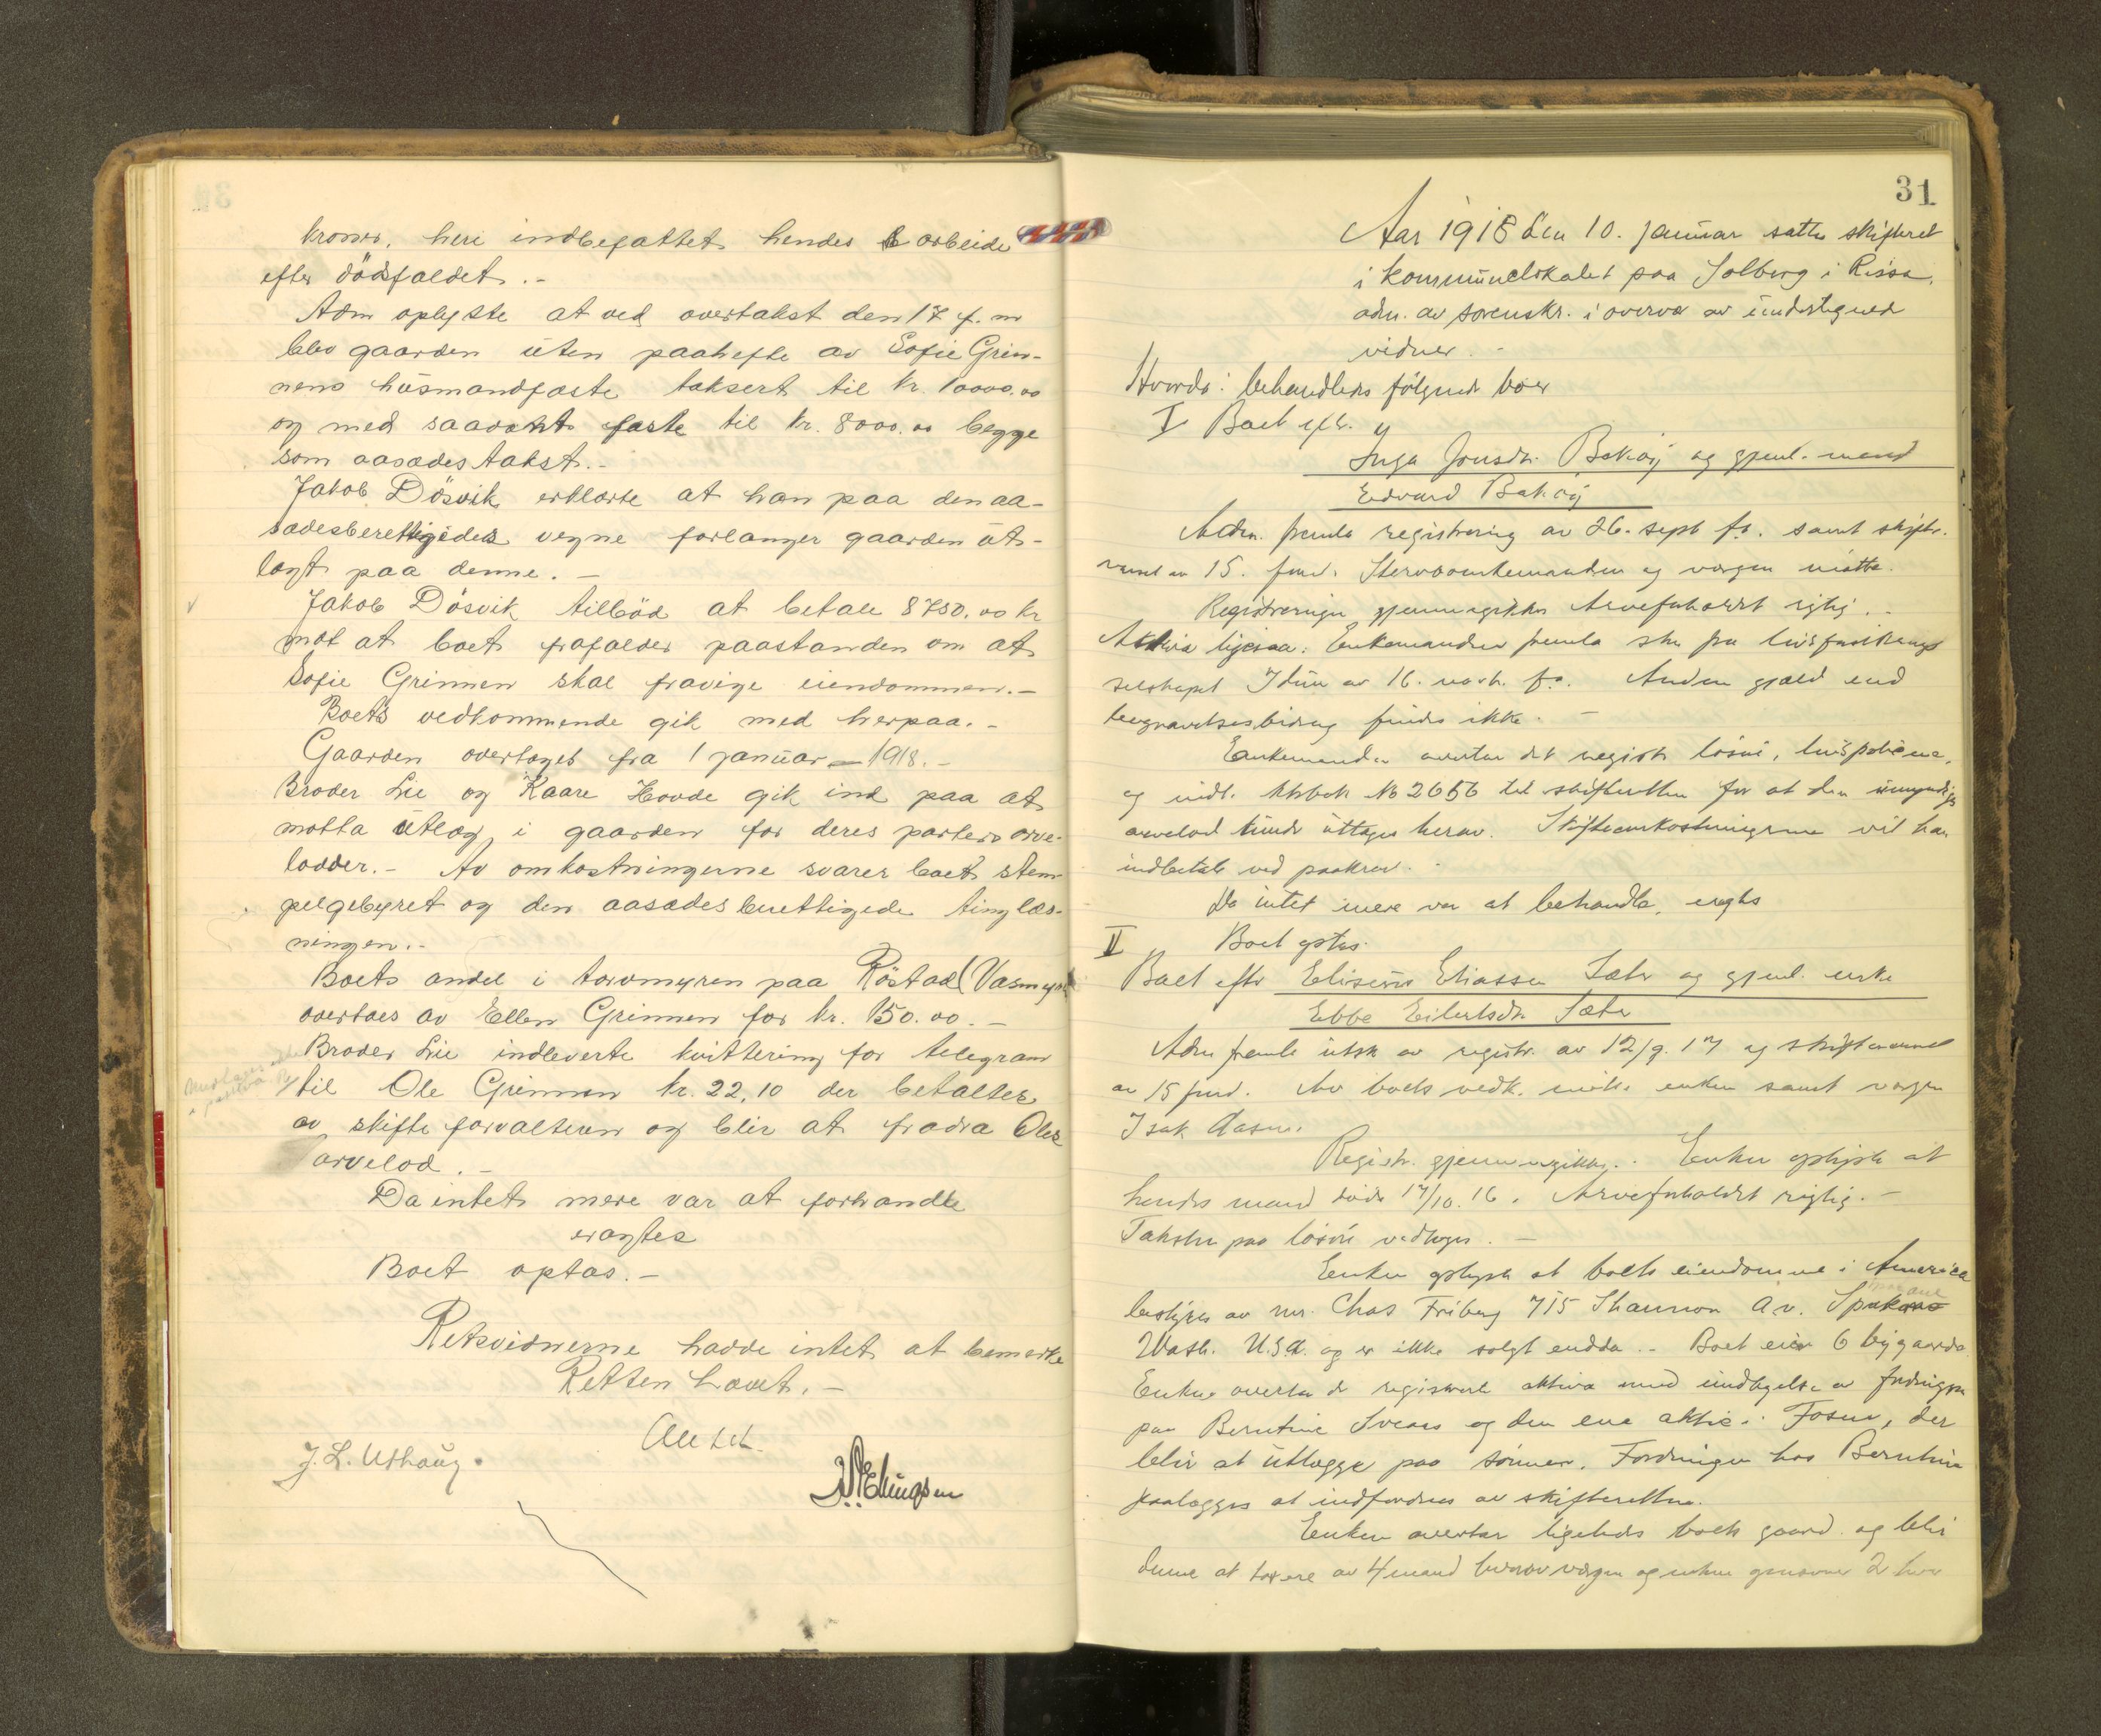 kroner, heri indbefattet hendes arbeide
efter dödsfaldet.-
Adm oplyste at ved overtakst den 17 f. m
blev gaarden uten paahefte av Sofie Grin-
nens husmandsfæste taksert til kr. 10000.00
og med saadant fæste til kr. 8000.00 begge
som aasædestakst.-
Jakob Dösvik erklærte at han paa den aa-
sædesberettigedes vegne forlanger gaarden ut-
lagt paa denne.-
Jakob Dösvik tilböd at betale 8750.00 kr
mot at boet frafalder paastanden om at
Sofie Grinnen skal fravige eiendommen.-
Boets vedkommende gik med herpaa.-
Gaarden overtages fra 1 januar 1918.-
Broder Lie og Kaare Hovde gik ind paa at
motta utlæg i gaarden for deres parters arve-
lodder.- Av omkostningerne svarer boet stem-
pelgebyret og den aasædesberettigede tinglæs-
ningen.-
Boets andel i torvmyren paa Röstad (Vasmyra
overtaes av Ellen Grinnen for kr. 150.00.-
Broder Lie indleverte kvittering for telegram
til Ole Grinnen kr. 22,10 der betaltes
av skifteforvalteren og blir at fradra Oles
arvelod.-
Da intet mere var at forhandle
eragtes
Boet optas.-
Retsvidnerne hadde intet at bemerke
Retten hævet.-
J. L. Uthaug.
Ellingsen
31
Aar 1918 den 10. januar sattes skifteret
i kommunelokalet paa Solberg i Rissa,
adm. av sorenskr. i overvær av undertegnede
vidner.-
Hvorda: behandledes følgende boer
I Boet eft.
Inga Jonsdtr. Bakøy og gjenl. mand
Edvard Bakøy
Adm. fremla registrering av 26. sept f.a. samt skifte-
varsel av 15. f.md. Stervboenkemanden og værgen møtte.
Registreringen gjennemgikkes Arveforholdet rigtig.-
Aktiva ligesaa. Enkemanden fremla skr fra livsforsikrings
selskapet Idun av 16. novb. f.a. Anden gjæld end
begravelsesbidrag findes ikke.-
Enkemanden overtar det registr løsøre, livspolicene,
og indl. bkbok No 2656 til skifteretten for at den umyndiges
arvelod kunde uttages herav. Skifteomkostningerne vil han
indbetale ved paakrav.-
Da intet mere var at behandle, eragtes
II Boet optas.
Boet efter Eliseus Eliassen Sæter og gjenl. enke
Ebbe Eilertsdtr. Sæter
Adm fremla utsk av registr. av 12/9. 17 og skiftevarsel
av 15 f.md. Av boets vedk. møtte enken samt værgen
Isak Aasen.
Registr. gjennemgikkes.. Enken oplyste at
hendes mand døde 17/10. 16. Arveforholdet rigtig.-
Taksten paa løsøre vedtoges.-
Enken oplyste at boets eiendomme i America
bestyres av mr. Chas Friberg 715 Shannon Av. Spokane
Wash. U.S.A. og er ikke solgt endda.- Boet eier 6 bygaarde.
Enken overtar de registrerte aktiva med undtagelse av fordringen
paa Berntine og den ene aktie i Fosen, der
blir at utlægge paa sønnen. Fordringen hos Berntine
paalægges at indfordres av skifteretten.
Enken overtar ligeledes boets gaard og blir
denne at taxere av 4 mand hvorav værgen og enken opnævner 2 hver